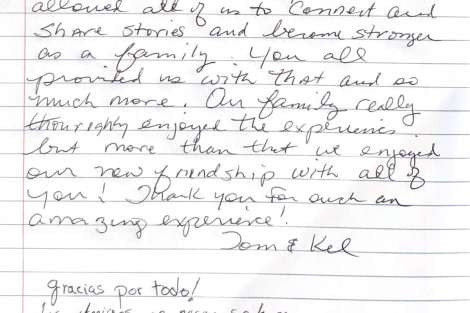 allowed all of us to connect and
share stories and become stronger
as a family. You all
provided us with that and so
much more. Our family really
thouroghly enjoyed the experiences
but more than that we enjoyed
our new friendship with all of
you! Thank you for such an
amazing experience!
Tom & Kel
gracias por todo!